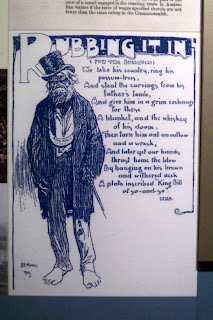 crew of a vessel engaged in the coasting trade in Austra-
lian waters if the rates of wages specified therein are not
lower than the rates ruling in the Commonwealth.
RUBBING IT IN
(FOR THE
We take his country, ring his
possum-trees,
And steal the carvings from his
father's tomb,
And give him a grim exchange
for these
A blanket, and the whiskey
of his doom;
Then turn him out an outlaw
and a wreck,
And later yet our hands,
thrust home the blow
By hanging on his brown
and withered neck
A plate inscribed "King Bill
of so-and-so"